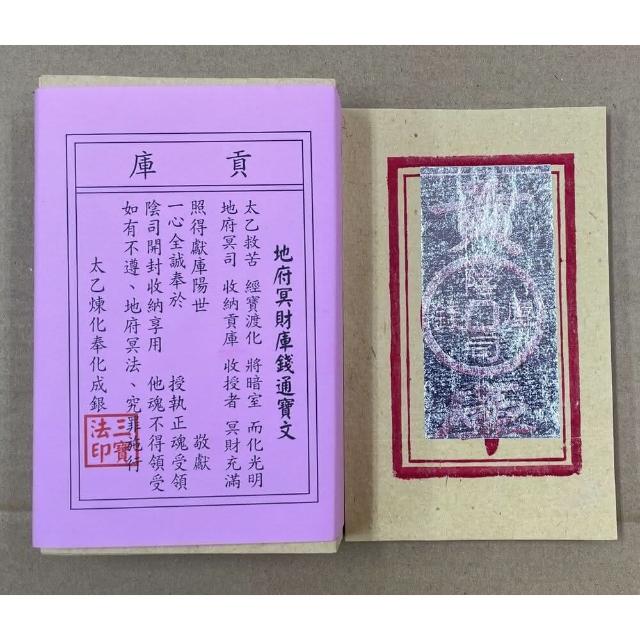 貢庫
地府冥財庫錢通寶文
太乙救苦 經寶渡化 將暗室 而化光明
地府冥司 收納貢庫 收授者 冥財充滿
照得獻庫陽世 敬獻
一心全誠奉於 授執正魂受領
陰司開封收納享用 他魂不得領受
如有不遵、地府冥法、究罪施行
太乙煉化奉化成銀
三寶法印